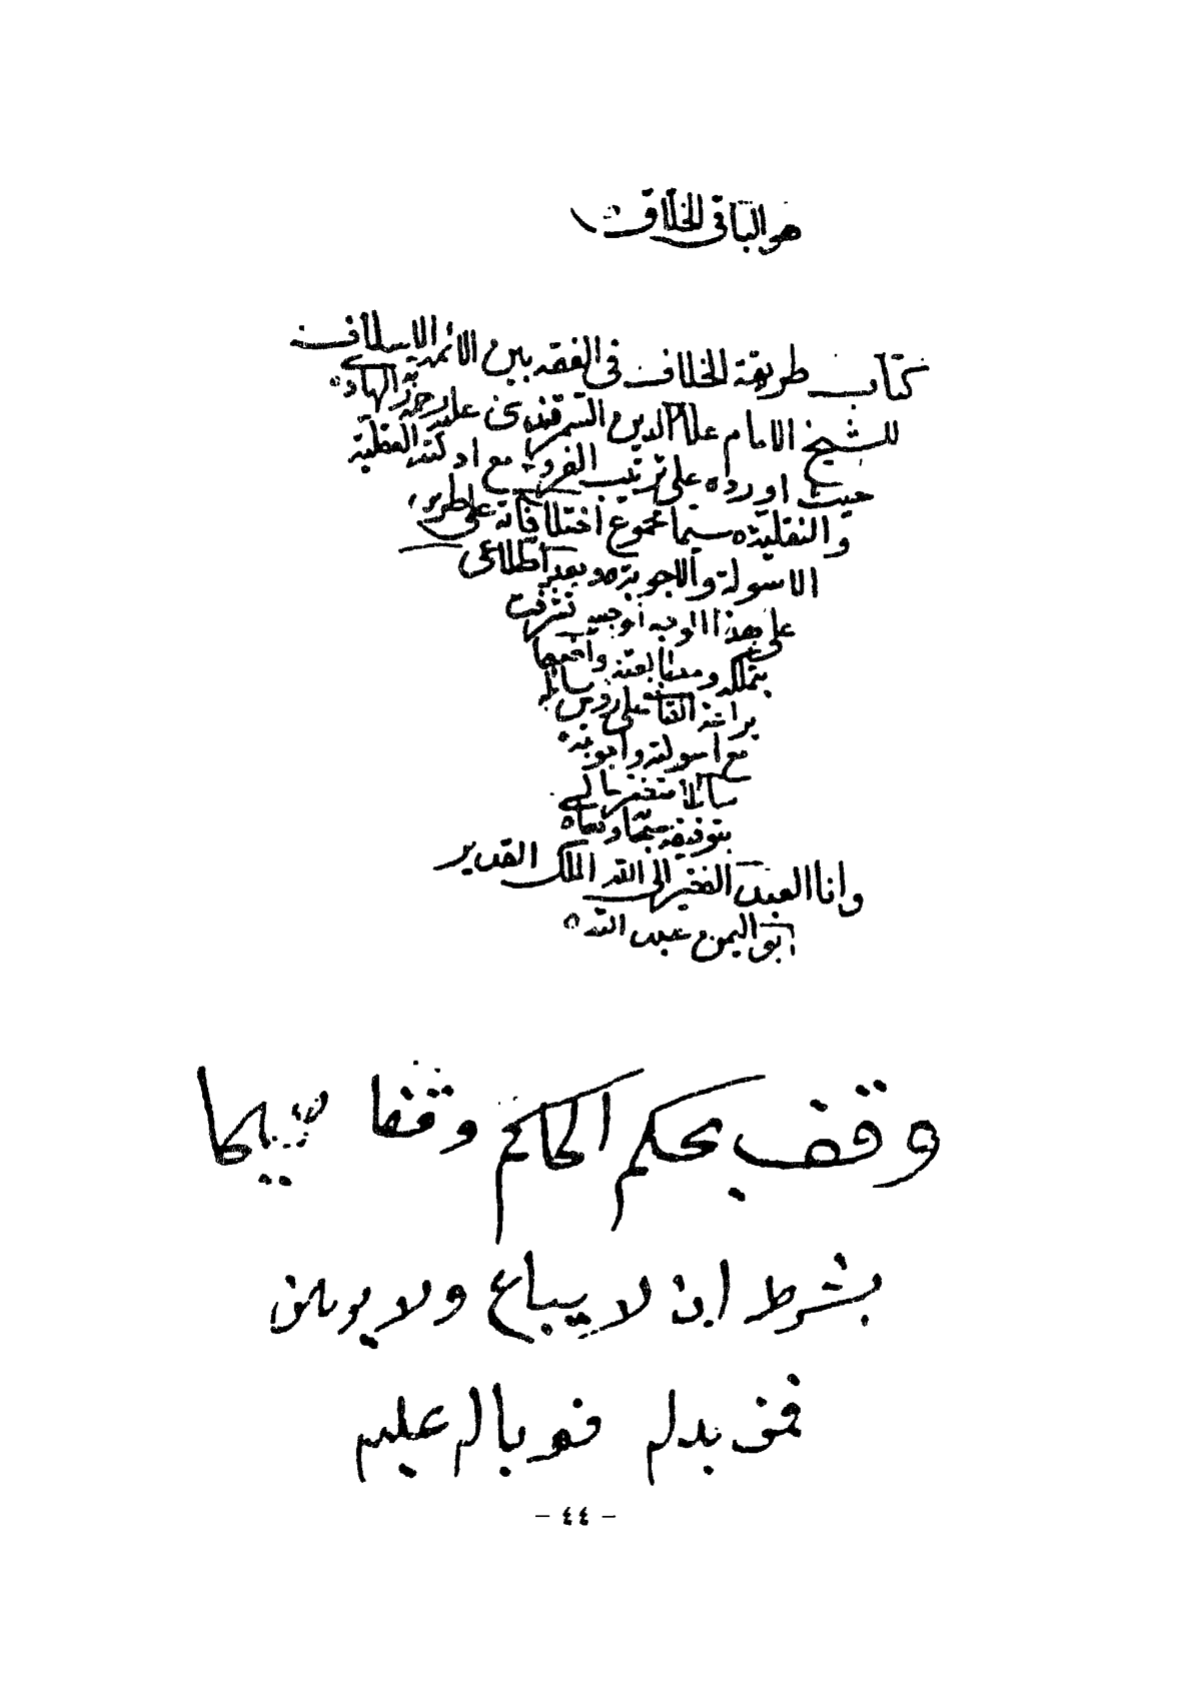 هو الباقي الخلاق
كتاب طريقة الخلاف في الفقه بين الائمة الاسلاف
للشيخ الامام علاء الدين السمرقندي عليه رحمة الهادي
حيث اورده على ترتيب الفروع مع ادلته العقلية
والنقلية سيما مجموع اختلافاته على طريق
الاسولة والاجوبة وبعد اطلاعي
على هذا الوجه اوجبت
بتملكه ومطالعته
على رؤس مسائله
مع اسولته واجوبته
سائلا
بتوفيقه
وانا العبد الفقير الى الله الملك القدير
ابو اليمن عبد الله
وقف بحكم الحاكم وقفا
بشرط ان لا يباع ولا يوهن
فمن بدله فوباله عليه
- ٤٤ -